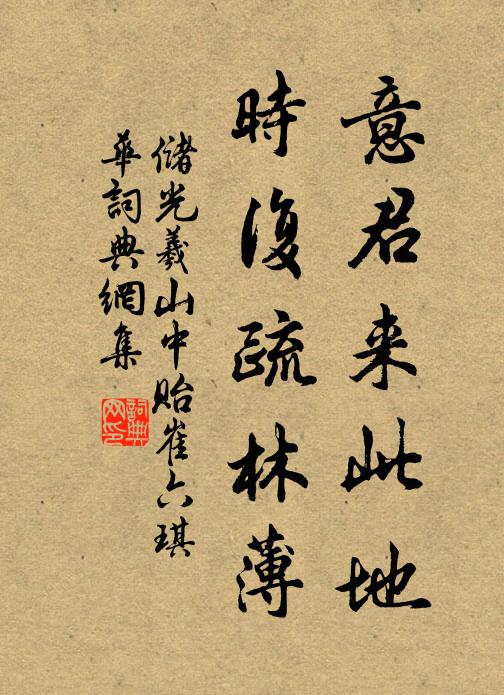 意君来此地
時復疏林薄
儲光羲山中貽崔六琪
華詞典網集
詞典
网印